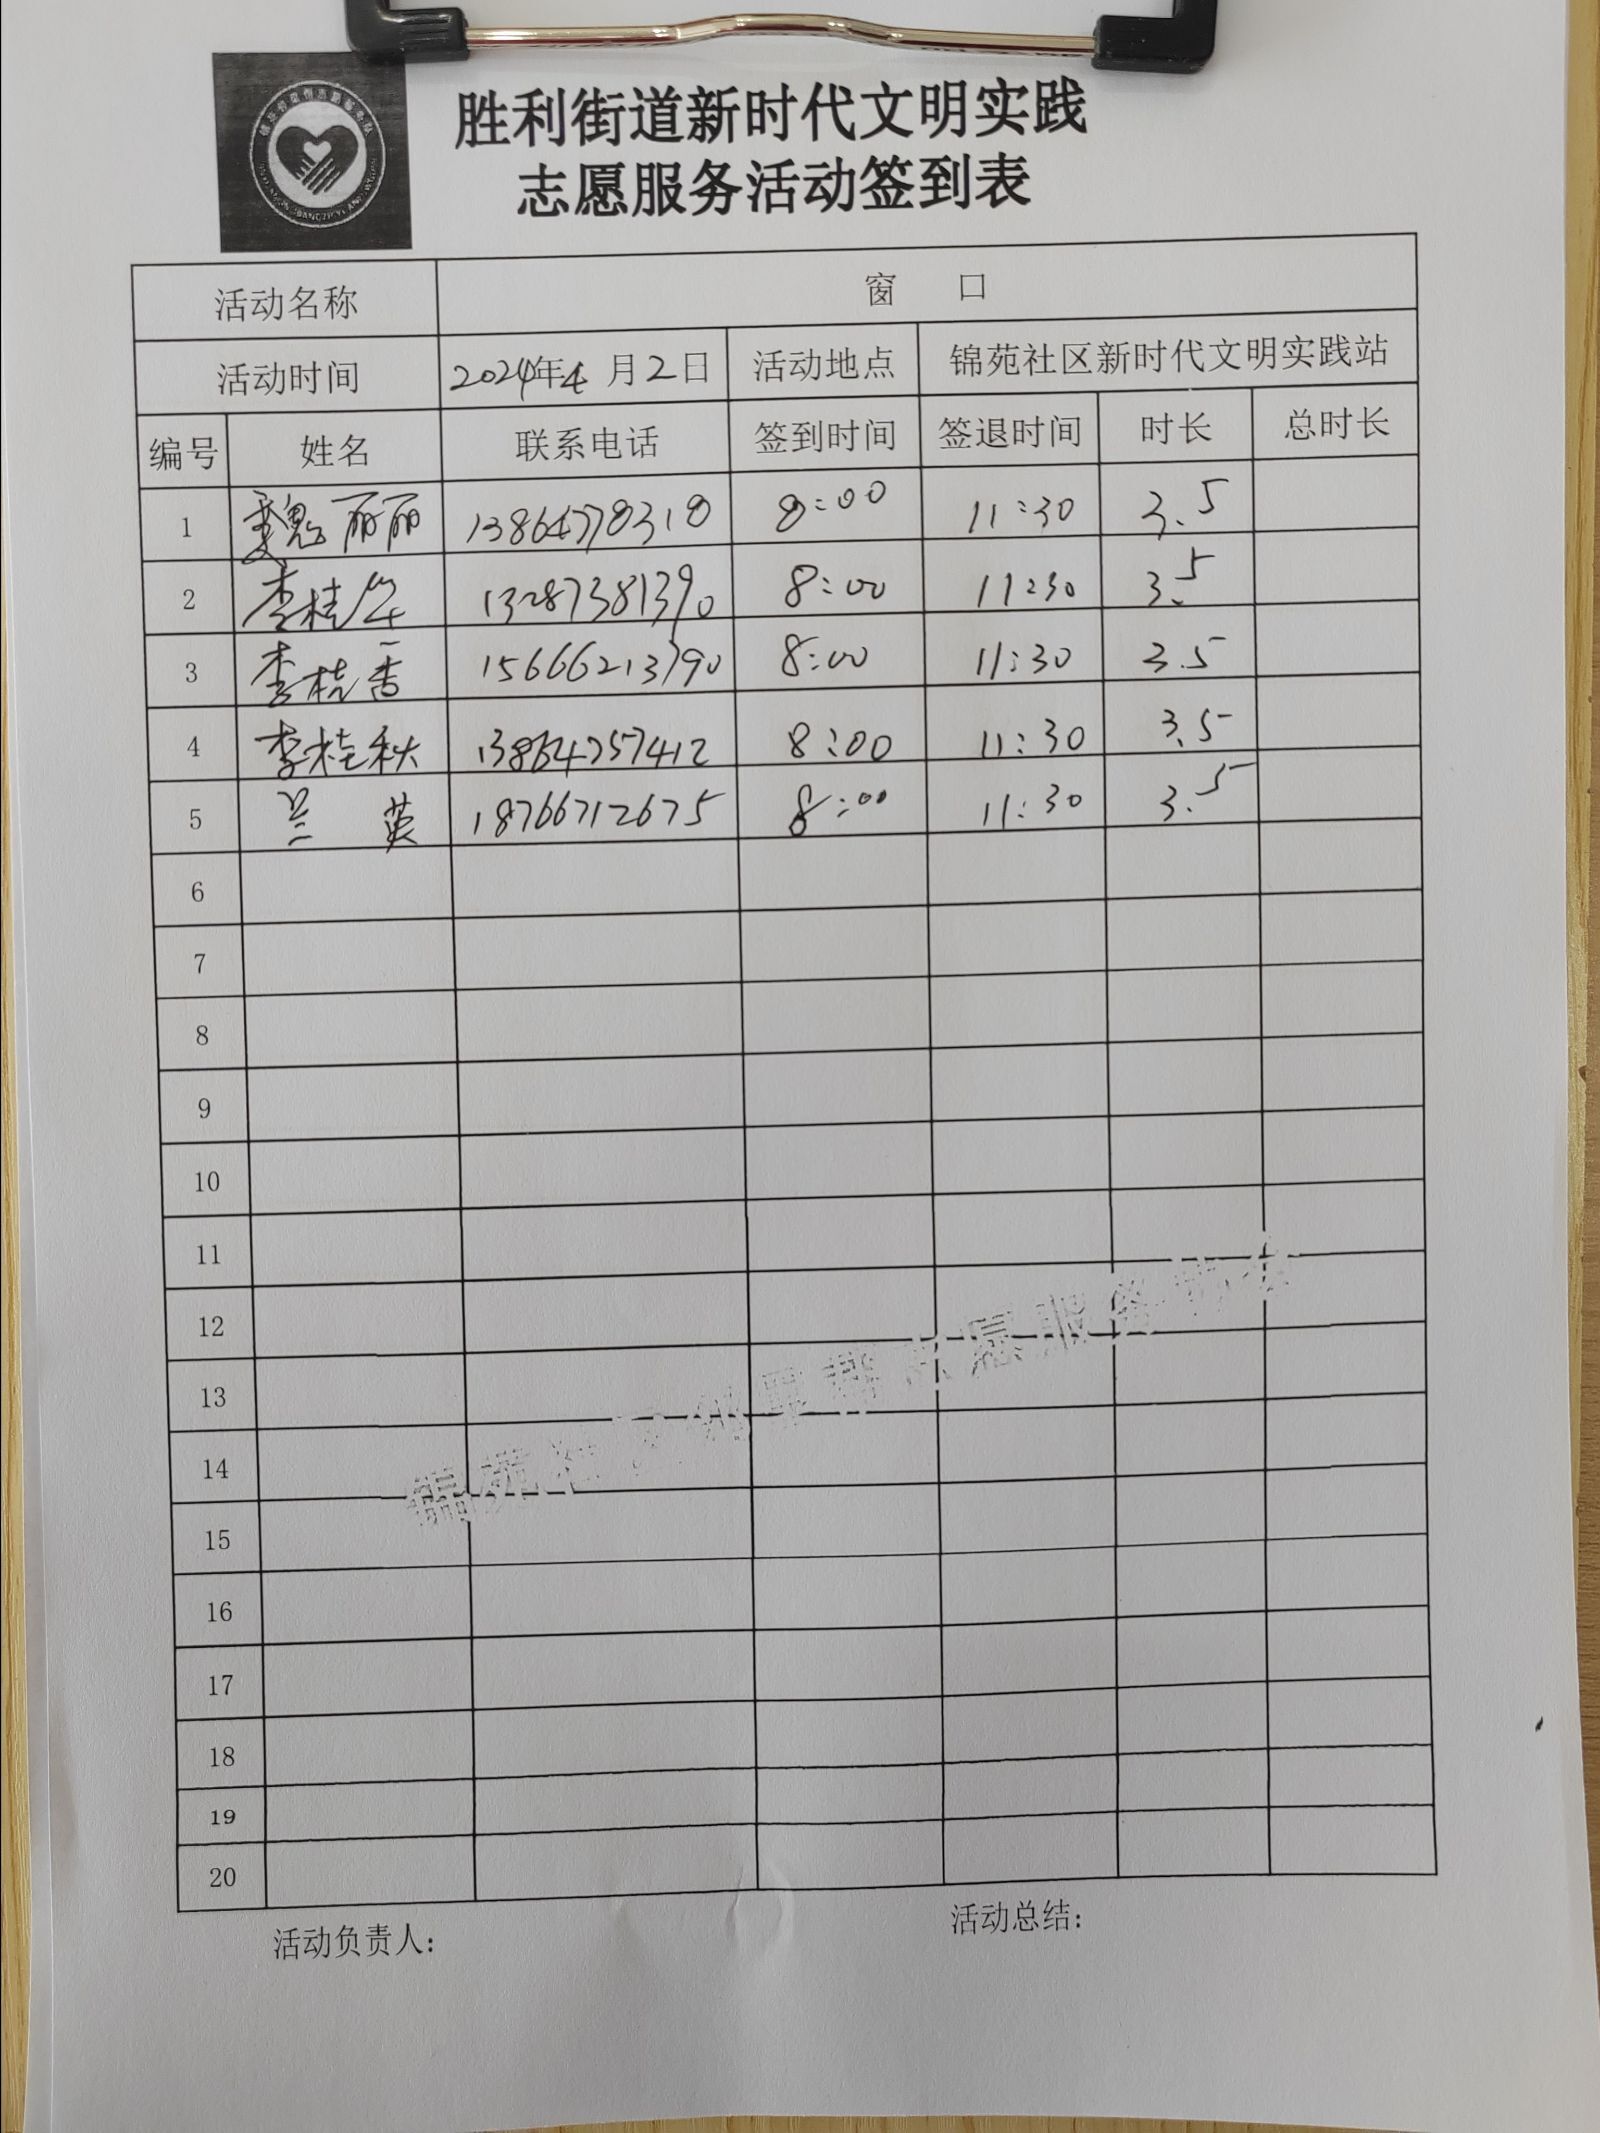 胜利街道新时代文明实践
志愿服务活动签到表
活动名称 窗 口
活动时间 2024年4月2日 活动地点 锦苑社区新时代文明实践站
编号 姓名 联系电话 签到时间 签退时间 时长 总时长
1 魏丽丽 13864778318 8:00 11:30 3.5
2 李桂华 13287381390 8:00 11:30 3.5
3 李桂香 15666213790 8:00 11:30 3.5
4 李桂秋 13864757412 8:00 11:30 3.5
5 兰英 18766712675 8:00 11:30 3.5
6
7
8
9
10
11
12
13
14
15
16
17
18
19
20
活动负责人：
活动总结：